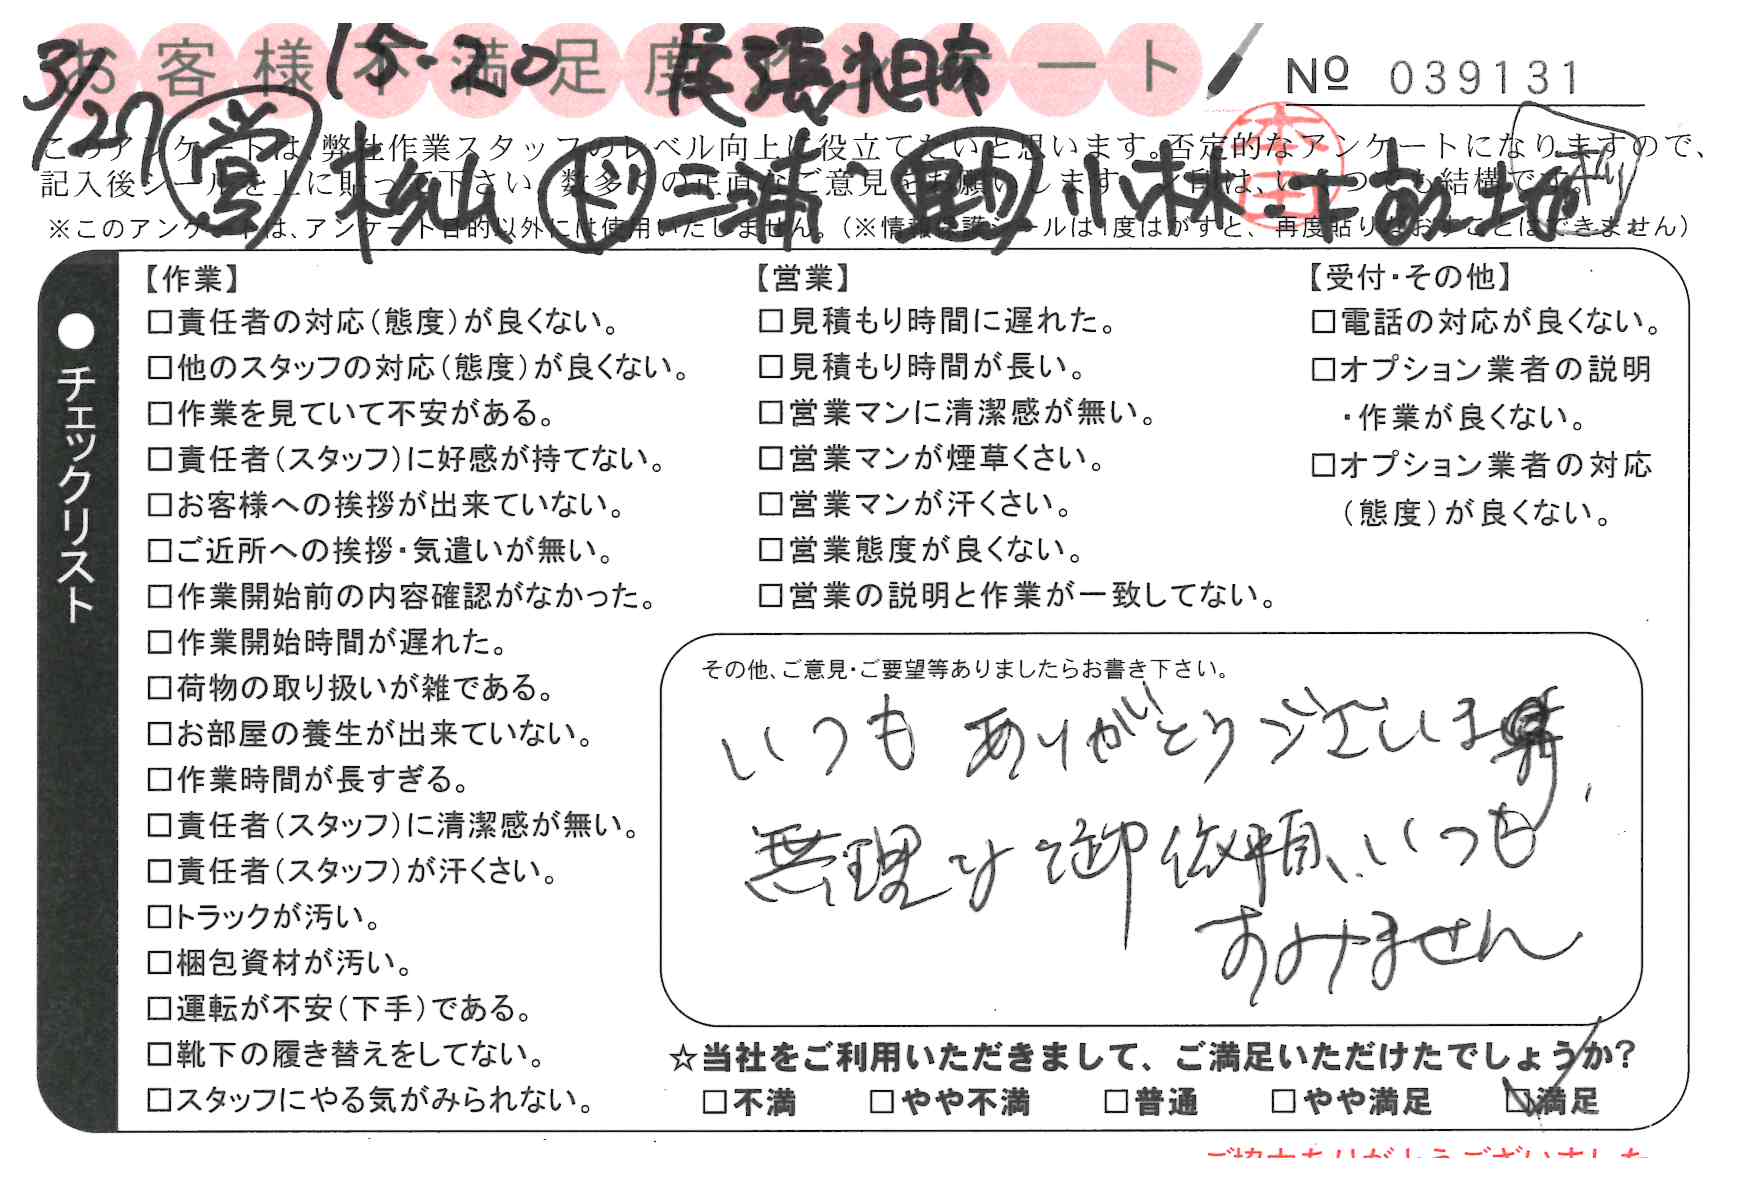 お客様不満足度アンケート
3/27 15-20 尾張旭市
No 039131
このアンケートは、弊社作業スタッフのレベル向上に役立てたいと思います。否定的なアンケートになりますので、
記入後シールを上に貼って下さい。数多くの正直なご意見をお願いします。
※このアンケートは、アンケート目的以外には使用いたしません。(※情報保護シールは1度はがすと、再度貼りなおすことはできません)
営 松山 ド 三浦 助 小林
本田
●チェックリスト
【作業】
□責任者の対応(態度)が良くない。
□他のスタッフの対応(態度)が良くない。
□作業を見ていて不安がある。
□責任者(スタッフ)に好感が持てない。
□お客様への挨拶が出来ていない。
□ご近所への挨拶・気遣いが無い。
□作業開始前の内容確認がなかった。
□作業開始時間が遅れた。
□荷物の取り扱いが雑である。
□お部屋の養生が出来ていない。
□作業時間が長すぎる。
□責任者(スタッフ)に清潔感が無い。
□責任者(スタッフ)が汗くさい。
□トラックが汚い。
□梱包資材が汚い。
□運転が不安(下手)である。
□靴下の履き替えをしてない。
□スタッフにやる気がみられない。
【営業】
□見積もり時間に遅れた。
□見積もり時間が長い。
□営業マンに清潔感が無い。
□営業マンが煙草くさい。
□営業マンが汗くさい。
□営業態度が良くない。
□営業の説明と作業が一致してない。
【受付・その他】
□電話の対応が良くない。
□オプション業者の説明
・作業が良くない。
□オプション業者の対応
(態度)が良くない。
その他、ご意見・ご要望等ありましたらお書き下さい。
いつも ありがとうございます、
無理な御依頼、いつも
すみません
☆当社をご利用いただきまして、ご満足いただけたでしょうか?
□不満 □やや不満 □普通 □やや満足 ☑満足
ご協力ありがとうございました